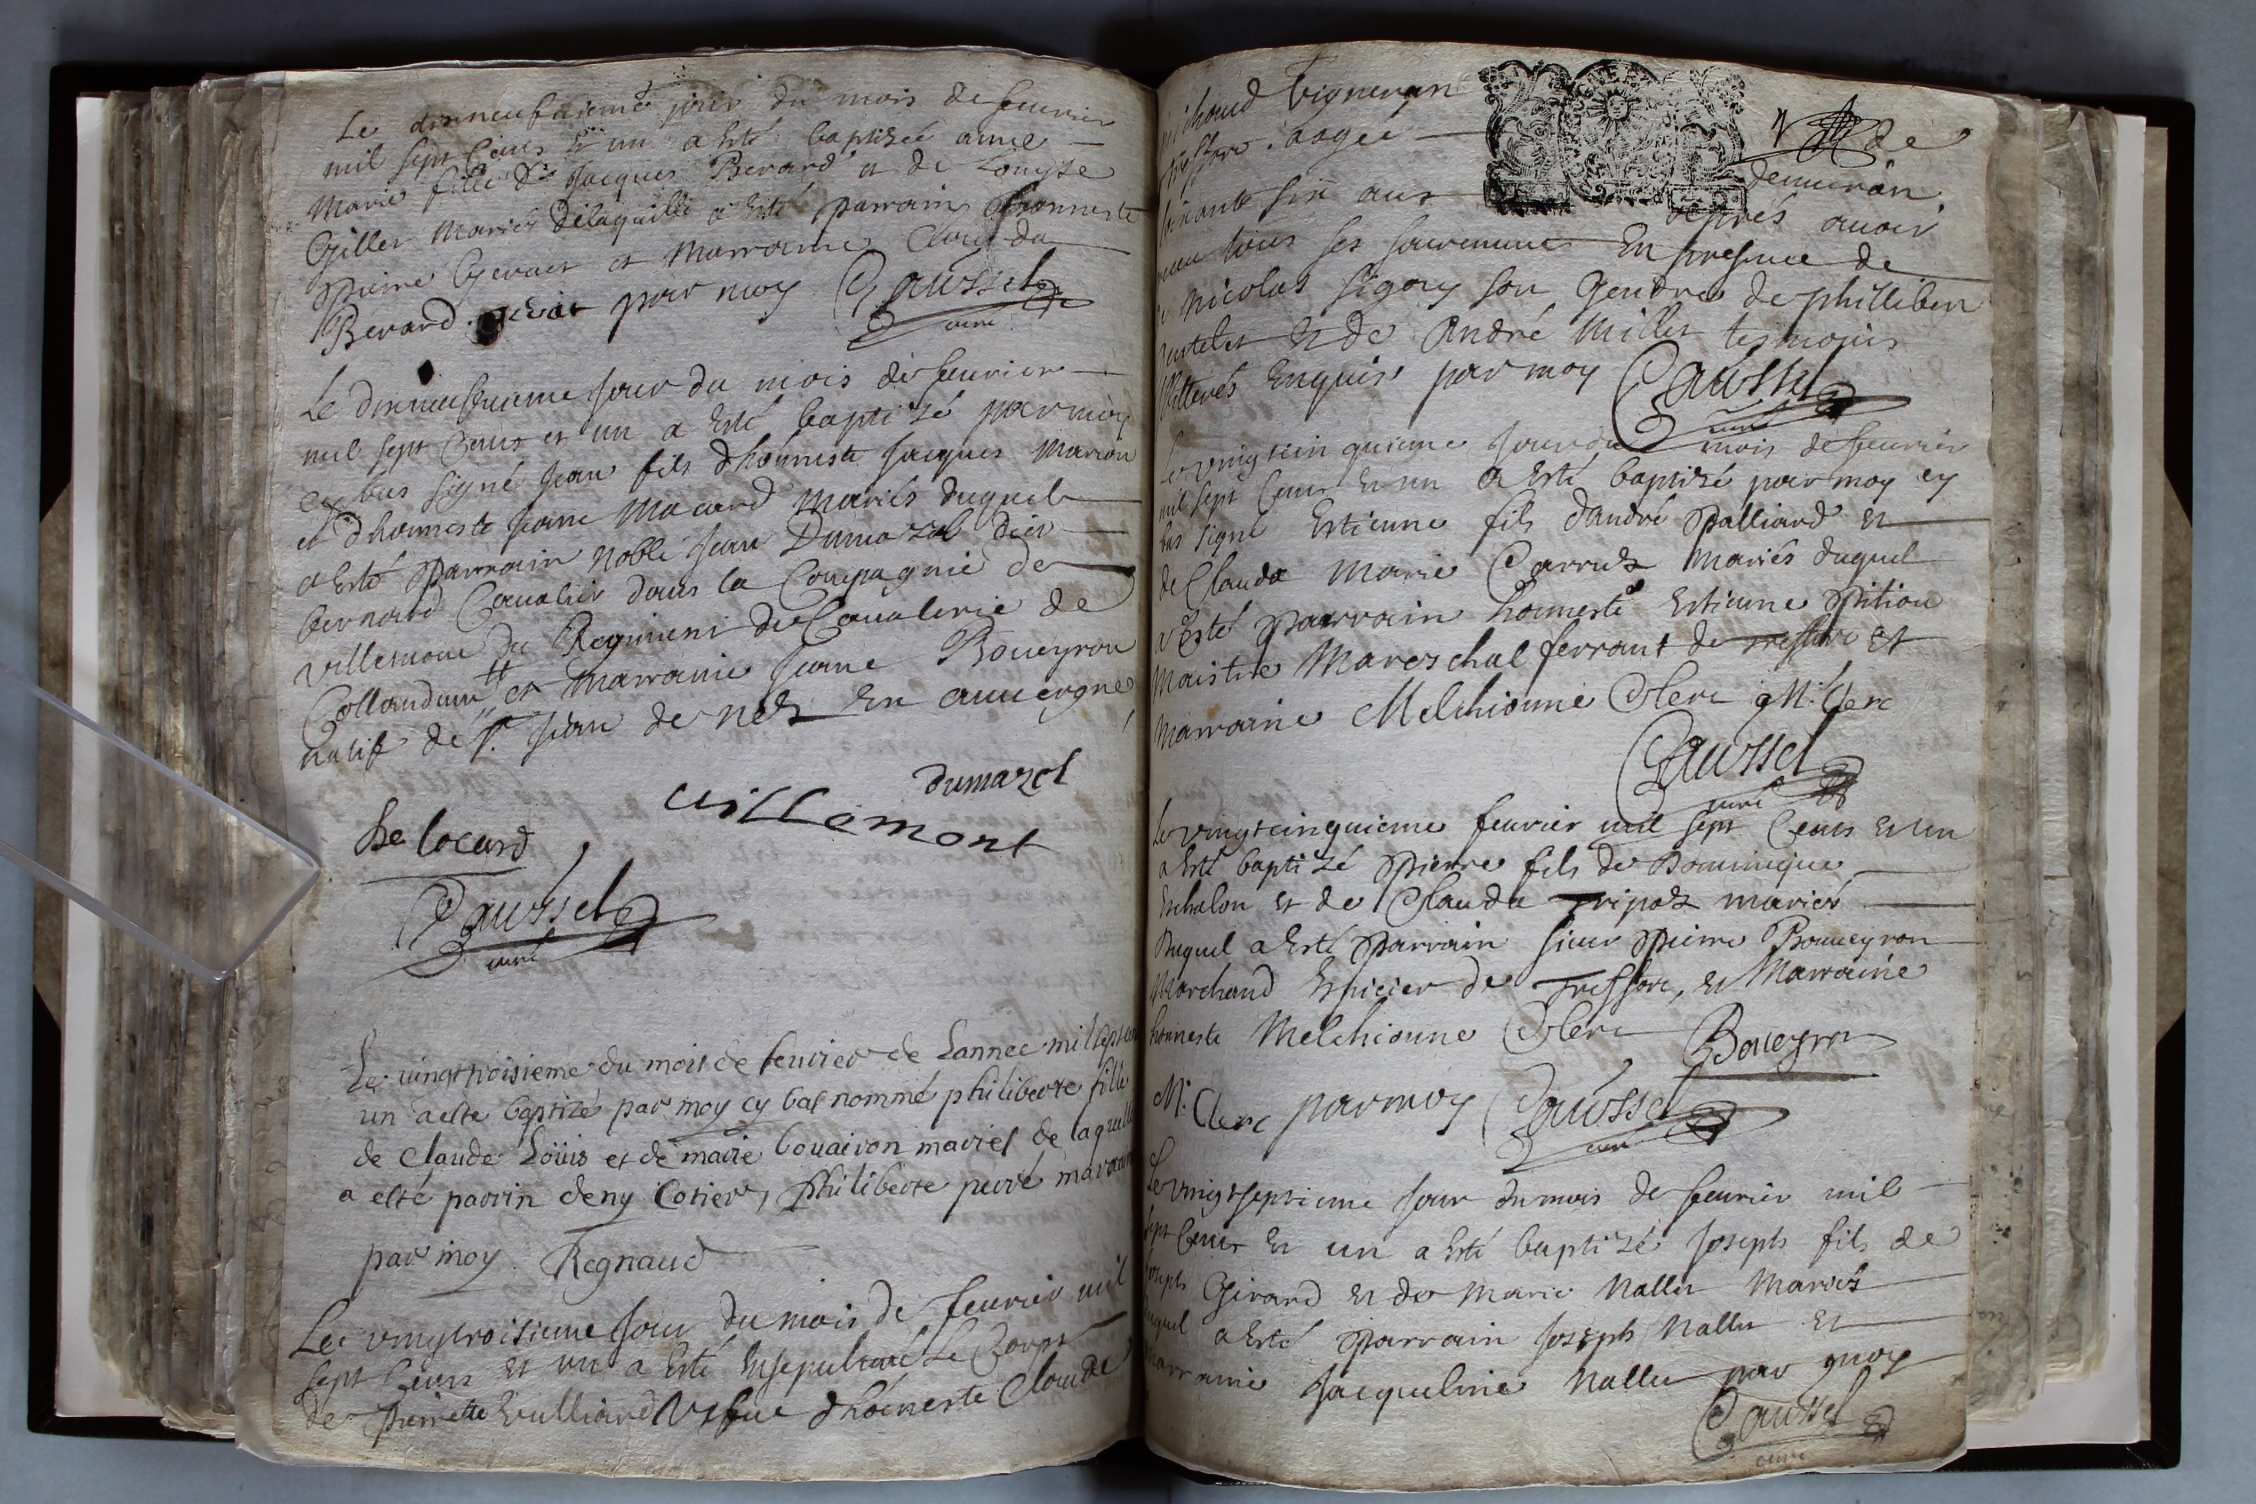 Le dixneufuieme jour du mois de feurier
mil sept Cens et un a esté baptizée anne
Marie fille de Jacques Berard et de Louyse
Gillet Mariés de laquelle a esté parrain honneste
Pierre Geruais et Marraine Claude
Berard par moy Gaussel
curé
Le dixneufuieme jour du mois de feurier
mil sept Cens et un a esté baptizé par moy
cy bas signé Jean fils d'honneste Jacques Marion
et d'honneste Jeanne Macard Mariés duquel
a esté parrain noble Jean Dumazel dict
bernard Caualier dans la Compagnie de
villemont du Regiment de Caualerie de
et Marraine Jeane Boueyron
natif de St. Jean de en auuergne
dumazel
uillemont
De locard
Gaussel
curé
Le uingttroisieme du mois de feurier de Lannee mil sept cent
un a esté baptizé par moy cy bas nommé philiberte fille
de claude Loüis et de marie bouairon mariés de laquelle
a esté parrin deny Cotier, philiberte peiré maraine
par moy Regnaud
Le vingttroisieme Jour du mois de feurier mil
sept Cens et un a esté Ensepulturé Le Corps
de Pierrette Vulliard Vefue d'honneste Claude
Michoud Vigneron de
Treffort aagée denuiron
soixante six ans apres auoir
receu tous ses sacremens En presence de
de Nicolas Sigory son Gendre de philibert
et de André Millet tesmoins
illiterés Enquis par moy Gaussel
curé
Le vingtcinquieme Jour du mois de feurier
mil sept Cens et un a esté baptizé par moy cy
bas signé Estienne fils d'andré Palliard et
de Claude Marie Carruz Mariés duquel
a esté parrain honneste Estienne Pition
Maistre Mareschal ferrant de treffort et
Marraine Melchionne Clerc M. Clerc
Gaussel
curé
Le vingtcinquieme feurier mil sept Cens et un
a esté baptizé Pierre fils de Dominique
Eschalon et de Claude Tripoz mariés
Duquel a esté parrain sieur Pierre Boueyron
Marchand Espicier de Treffort, et Marraine
honneste Melchionne Clerc Boueyron
M. Clerc par moy Gaussel
curé
Le vingtseptieme Jour du mois de feurier mil
sept Cens et un a esté baptizé Joseph fils de
Joseph Girard et de Marie Nallet Mariés
duquel a esté parrain Joseph Nallet et
marraine Jacqueline Nallet par moy
Gaussel
curé